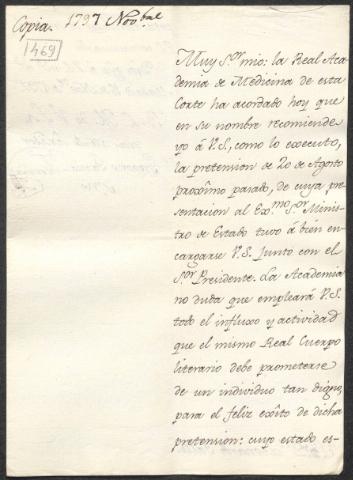 Copia. 1797 Nov.bre
1469
Muy S.or mio: la Real Aca
demia de Medicina de esta
Corte ha acordado hoy que
en su nombre recomiende
yo á V.S., como lo executo,
la pretension de 20 de Agosto
proxîmo pasado, de cuya pre
sentacion al Ex.mo S.or Minis
tro de Estado tuvo á bien en
cargarse V.S. junto con el
S.or Presidente. La Academia
no duda que empleará V.S.
todo el influxo y actividad
que el mismo Real Cuerpo
literario debe prometerse
de un individuo tan digno,
para el feliz exîto de dicha
pretension: cuyo estado es-